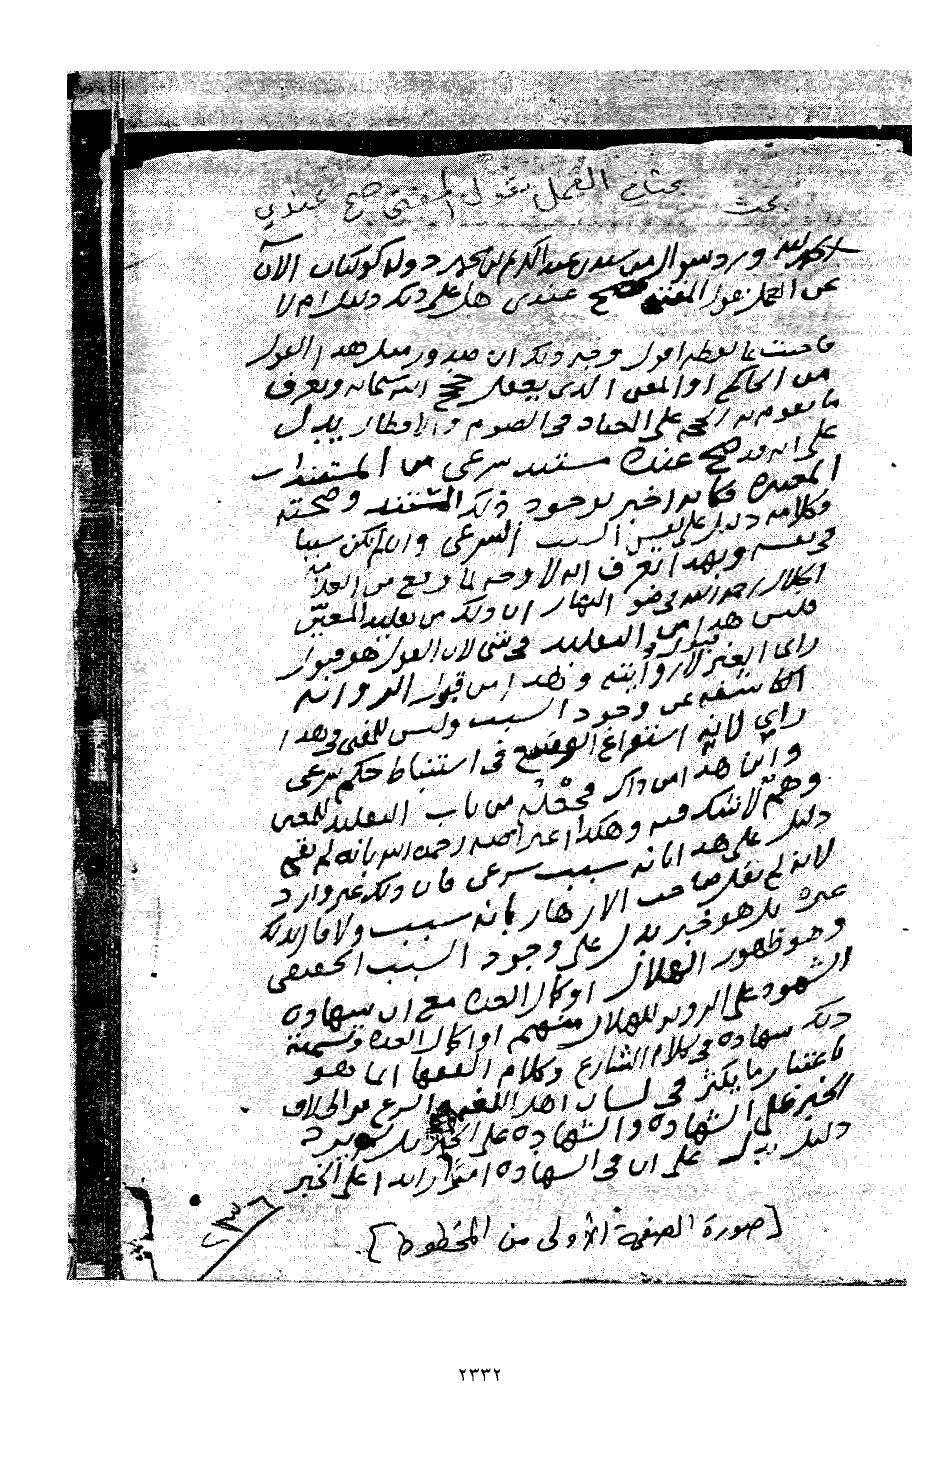 بحث في العمل بقول المفتي صح عندي
بحث
الحمد لله ورد سؤال من سيدي عبد الكريم بن محمد دولة كوكبان الآن
عن العمل بقول المفتي صح عندي هل على ذلك دليل ام لا
فاجبت بما لفظه اقول وجه ذلك ان صدور مثل هذا القول
من الحاكم او المفتي الذي يعقل حجج الله سبحانه ويعرف
ما تقوم به الحجج على العباد في الصوم والافطار يدل
على انه قد صح عنده مستند شرعي من المستندات
المعتبرة فكأنه اخبر بوجود ذلك المستند وصحته
وكلامه دليل على نفس السبب الشرعي وان لم يكن سببا
في نفسه وبهذا تعرف انه لا وجه لما وقع من العلامة
الجلال رحمه الله في ضوء النهار ان ذلك من تقليد المعين
فليس هذا من التقليد في شي لان القول هو قبول
راي الغير لا روايته وهذا من قبول الرواية
الكاشفة عن وجود السبب وليس للمفتي في هذا
راي لانه استفراغ الوسع في استنباط حكم شرعي
واين هذا من ذاك فجعله من باب التقليد للمفتي
وهم لا شك فيه وهكذا اعتراضه رحمه الله بانه لم يقم
دليل على هذا انه سبب شرعي فان ذلك غير وارد
لانه لم يقل صاحب الازهار بانه سبب ولا قال بذلك
غيره بل هو خبر يدل على وجود السبب الحقيقي
وهو ظهور الهلال او كمال العدة مع ان شهادة
الشهود على الرويه للهلال منهم او اكمال العدة وتسمية
ذلك شهادة في كلام الشارع وكلام الفقها انما هو
باعتبار ما يكثر في لسان اهل الشرع من اطلاق
الخبر على الشهادة والشهادة على الخبر بل لم يرد
دليل يدل على ان في الشهادة امرا زايدا على الخبر
[صورة الصفحة الأولى من المخطوط]
٢٣٣٢